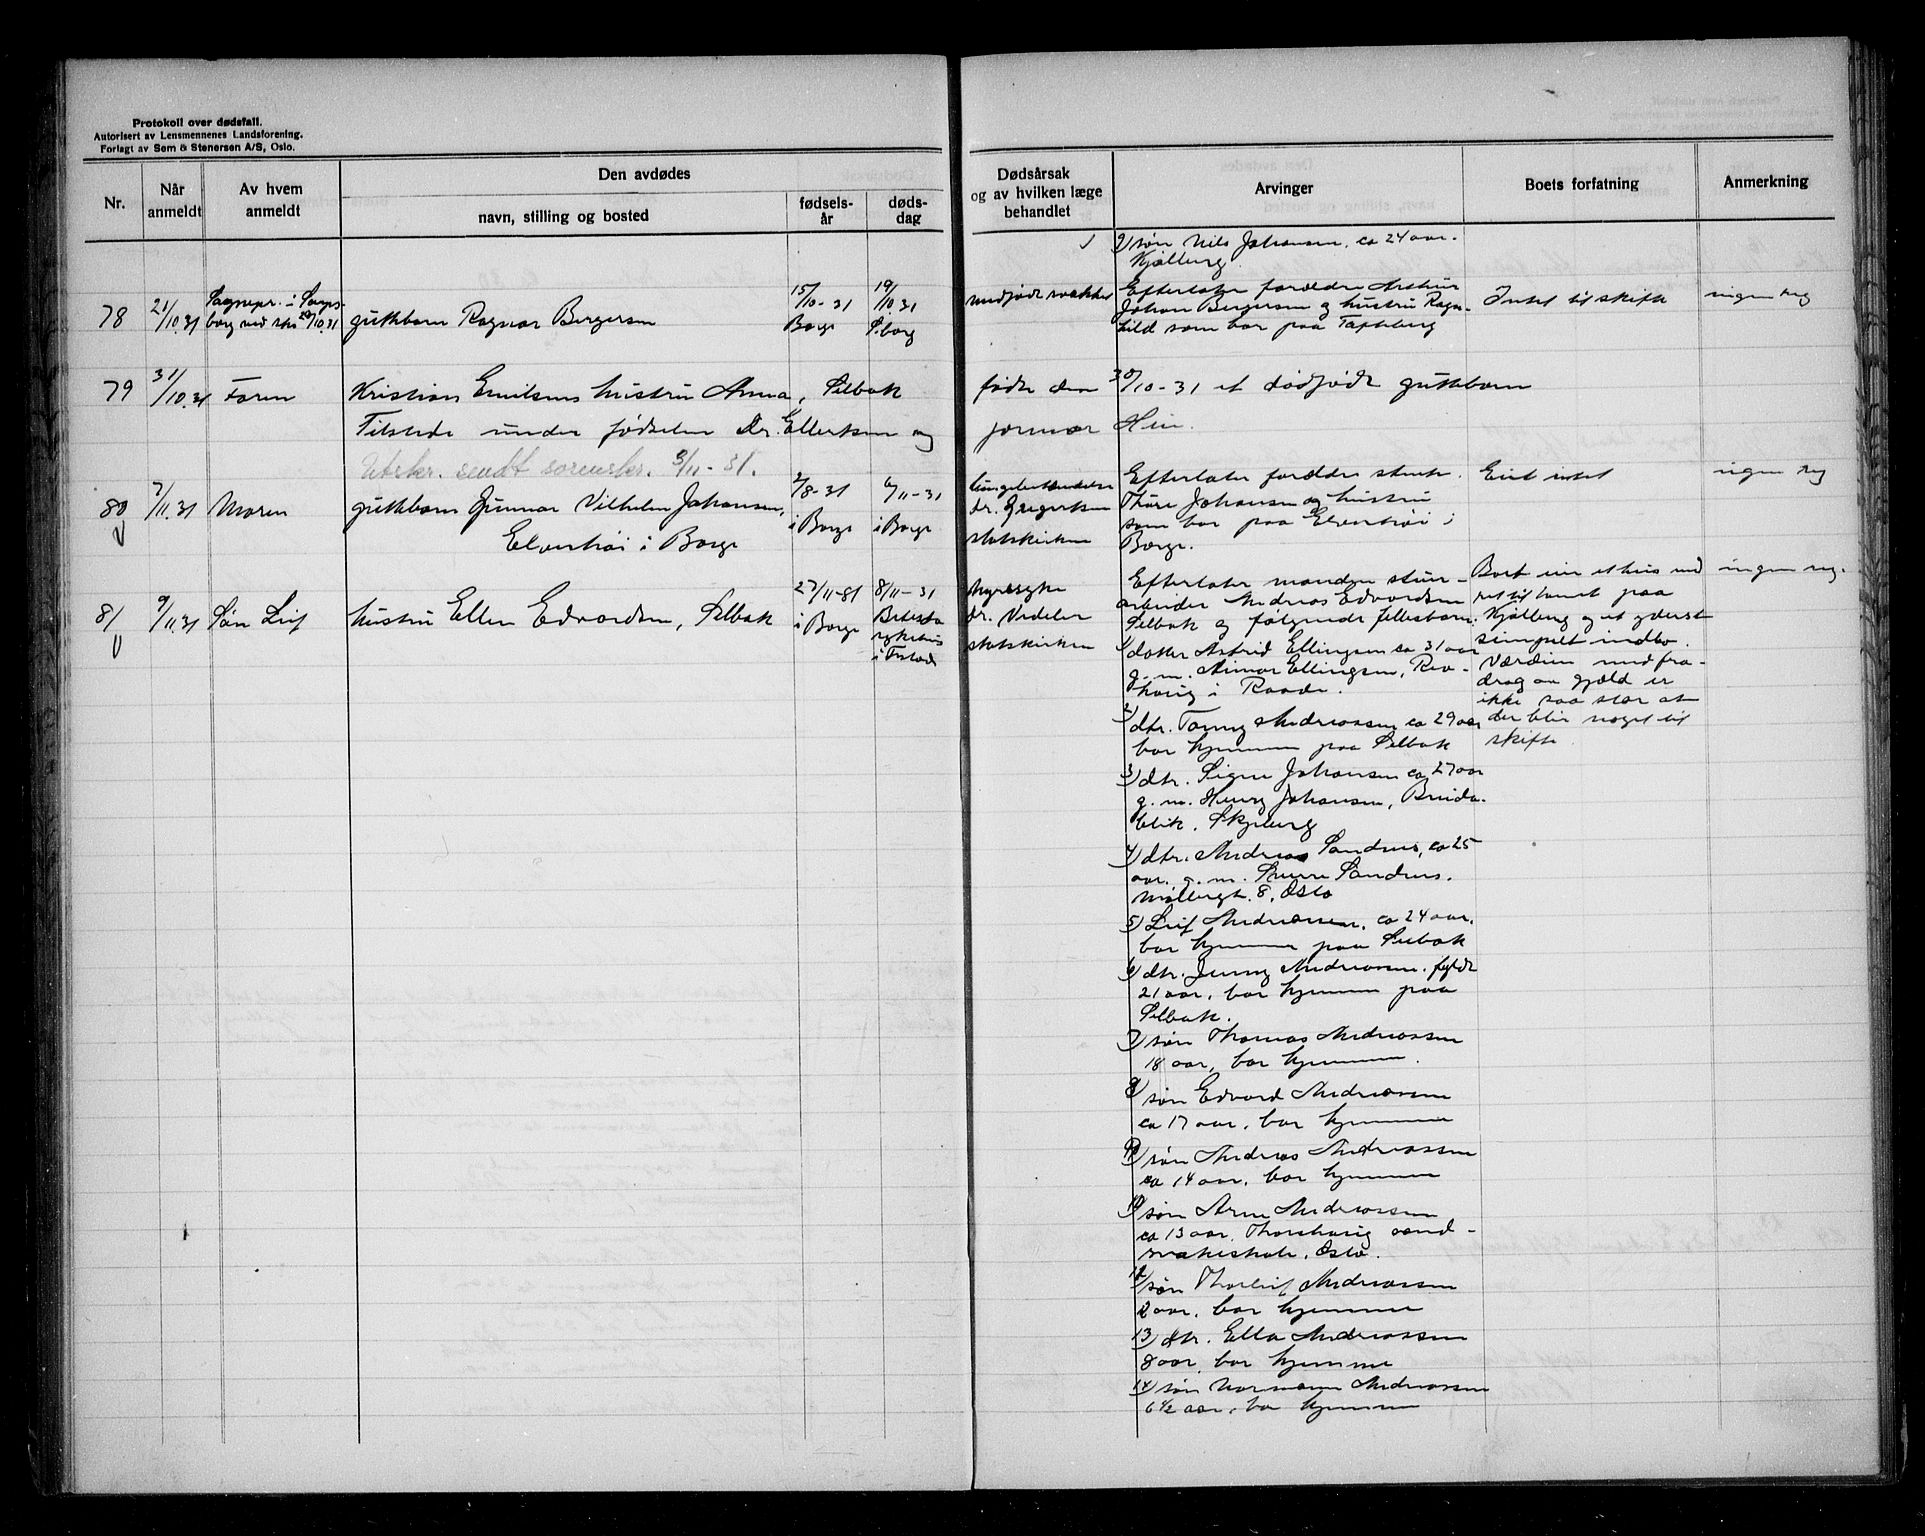 Protokoll over dødsfall.
Autorisert av Lensmennenes Landsforening.
Forlagt av Sem & Stenersen A/S, Oslo.
Nr.
Når anmeldt
Av hvem anmeldt
Den avdødes
navn, stilling og bosted
fødsels-år
døds-dag
Dødsårsak
og av hvilken læge
behandlet
Arvinger
Boets forfatning
Anmerkning
2) søn Nils Johansen, ca 24 aar.
Kjølberg
78
21/10.31
Sognepr. i Sarps-
borg ved skr 20/10.31
guttbarn Ragnar Bergersen
15/10-31
Borge
19/10.31
S.borg
medfødt svakhet
Efterlater forældre Arthur
Johan Bergersen og hustru Ragn-
hild som bor paa Tapteberg
Intet til skifte
ingen reg
79
31/10.31
Faren
Kristian Emilsens hustru Anna, Selbak
fødte den 30/10-31 et dødfødt guttbarn
Tilstede under fødselen Dr. Ellertsen og
jormor Hein.
Utskr. sendt sorenskr. 3/11-31.
80
7/11.31
Moren
guttbarn Gunnar Vilhelm Johansen,
Elverhøi i Borge
2/8-31
i Borge
6/11-31
i Borge
lungebetændelse
dr. Gregertsen
statskirken
Efterlater forældre
Thure Johansen og hustru
som bor paa Elverhøi i
Borge.
Eiet intet
ingen reg
81
9/11.31
Søn Leif
hustru Ellen Edvardsen, Selbak
27/11-81
i Borge
8/11-31
sykehus
i F.stad
Nyresyke
dr. Vedeler
statskirken
Efterlater manden
arbeider Andreas Edvardsen
Selbak og følgende fellesbarn:
1) datter Astrid Ellingsen ca 31 aar
g.m. Aimar Ellingsen,
i Raade.
2) dtr. Fanny Andreassen ca 29 aar
bor hjemme paa Selbak
3) dtr. Signe Johansen ca 27 aar
g.m. Henry Johansen, Breida-
blik, Skjeberg
4) dtr. Andrea Sandnes, ca 25
aar, g.m. Sverre Sandnes.
Møllergt. 8, Oslo
5) Leif Andreassen, ca 24 aar,
bor hjemme paa Selbak
6) dtr. Jenny Andreassen, fyldt
21 aar, bor hjemme paa
Selbak.
7) søn Thomas Andreassen
18 aar, bor hjemme.
8) søn Edvard Andreassen
ca 17 aar, bor hjemme
9) søn Andreas Andreassen
ca 14 aar, bor hjemme
søn Arne Andreassen
ca 13 aar, Thorshaug aand-
svakeskole, Oslo.
12) søn Thorleif Andreassen
aar, bor hjemme
13) dtr. Ella Andreassen
8 aar, bor hjemme
14) søn Normann Andreassen
6 1/2 aar, bor hjemme
Boet eier et hus med
ret til tomt paa
Kjølberg og et yderst
simpelt indbo.
Værdien med fra-
drag av gjæld er
ikke saa stor at
der blir noget til
skifte
ingen reg.